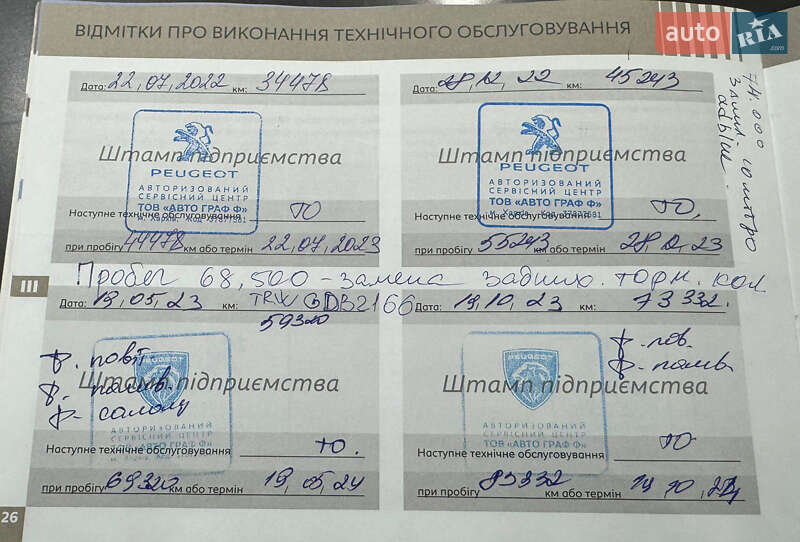 ВІДМІТКИ ПРО ВИКОНАННЯ ТЕХНІЧНОГО ОБСЛУГОВУВАННЯ
auto RIA .com
Дата: 22,07,2022 км: 34478
Штамп підприємства
PEUGEOT
АВТОРИЗОВАНИЙ
СЕРВІСНИЙ ЦЕНТР
ТОВ «АВТО ГРАФ Ф»
м. Харків, Код 37877581
Наступне технічне обслуговування ТО
при пробігу 44478 км або термін 22,07,2023
Дата: 28,12,22 км: 45243
Штамп підприємства
PEUGEOT
АВТОРИЗОВАНИЙ
СЕРВІСНИЙ ЦЕНТР
ТОВ «АВТО ГРАФ Ф»
м. Харків, Код 37877581
Наступне технічне обслуговування ТО,
при пробігу 55243 км або термін 28,12,23
74.000
10 литро
adblue.
Пробег 68,500 - замена задних. торм. кол
TRW GDB2166
III
Дата: 19,05,23 км:
59320
ф. повіт.
ф. палив.
ф. салону
Штамп підприємства
PEUGEOT
АВТОРИЗОВАНИЙ
СЕРВІСНИЙ ЦЕНТР
ТОВ «АВТО ГРАФ Ф»
Наступне технічне обслуговування ТО.
при пробігу 69320 км або термін 19,05,24
Дата: 19,10,23 км: 73332.
ф. пов.
ф. палив.
Штамп підприємства
PEUGEOT
АВТОРИЗОВАНИЙ
СЕРВІСНИЙ ЦЕНТР
ТОВ «АВТО ГРАФ Ф»
Наступне технічне обслуговування ТО
при пробігу 83332 км або термін 19,10,24
26